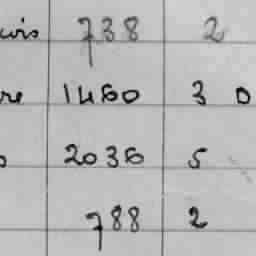 738 2
1460 3 0
2036 5
788 2